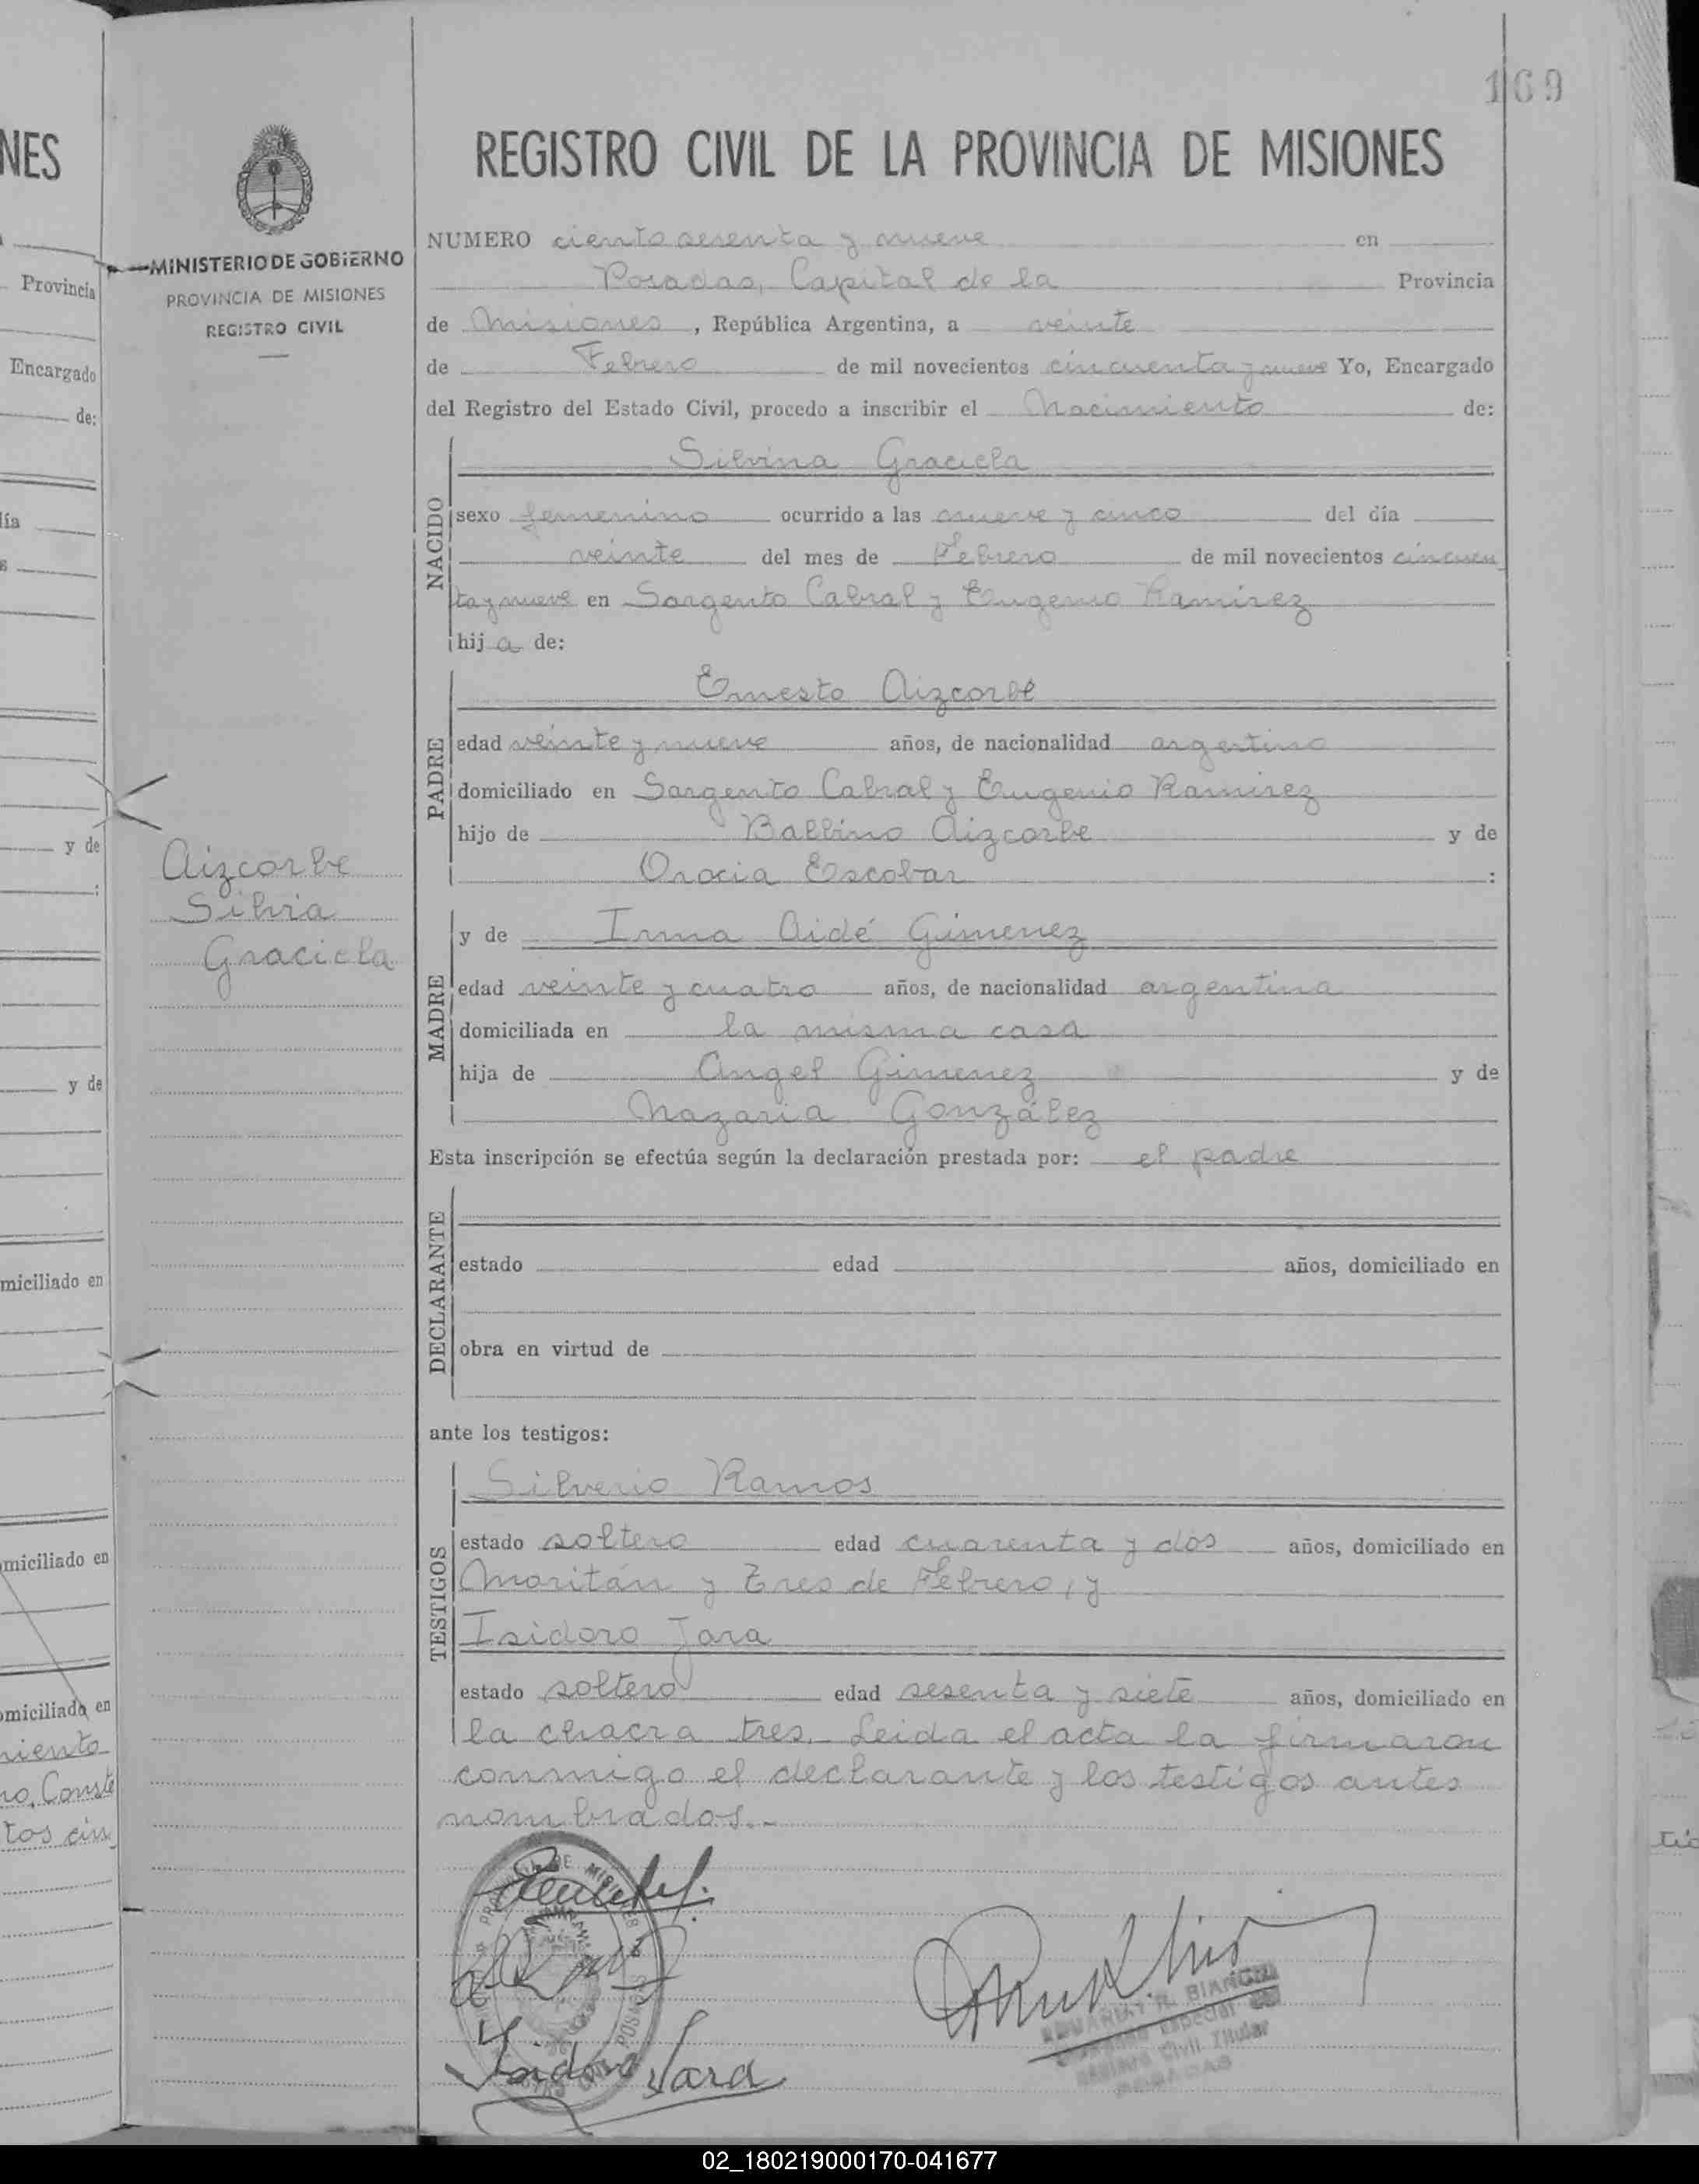 169
NES
REGISTRO CIVIL DE LA PROVINCIA DE MISIONES
MINISTERIO DE GOBIERNO
PROVINCIA DE MISIONES
REGISTRO CIVIL
NUMERO ciento sesenta y nueve en
Posadas, Capital de la Provincia
de Misiones, República Argentina, a veinte
de Febrero de mil novecientos cincuenta y nueve Yo, Encargado
del Registro del Estado Civil, procedo a inscribir el Nacimiento de:
NACIDO
Silvina Graciela
sexo femenino ocurrido a las nueve y cinco del día
veinte del mes de Febrero de mil novecientos cincuen
ta y nueve en Sargento Cabral y Eugenio Ramirez
hija de:
PADRE
Ernesto Aizcorbe
edad veinte y nueve años, de nacionalidad argentino
domiciliado en Sargento Cabral y Eugenio Ramirez
hijo de Balbino Aizcorbe y de
Oracia Escobar :
Aizcorbe
Silvia
Graciela
MADRE
y de Irma Aidé Gimenez
edad veinte y cuatro años, de nacionalidad argentina
domiciliada en la misma casa
hija de Angel Gimenez y de
Nazaria González
Esta inscripción se efectúa según la declaración prestada por: el padre
DECLARANTE
estado edad años, domiciliado en
obra en virtud de
ante los testigos:
TESTIGOS
Silverio Ramos
estado soltero edad cuarenta y dos años, domiciliado en
Moritán y Tres de Febrero, y
Isidoro Jara
estado soltero edad sesenta y siete años, domiciliado en
la chacra tres. Leida el acta la firmaron
conmigo el declarante y los testigos antes
nombrados.-
Isidoro Jara
Provincia
Encargado
de:
día
y de
:
y de
miciliado en
omiciliado en
omiciliado en
miento
Conste
tos cin
02_180219000170-041677